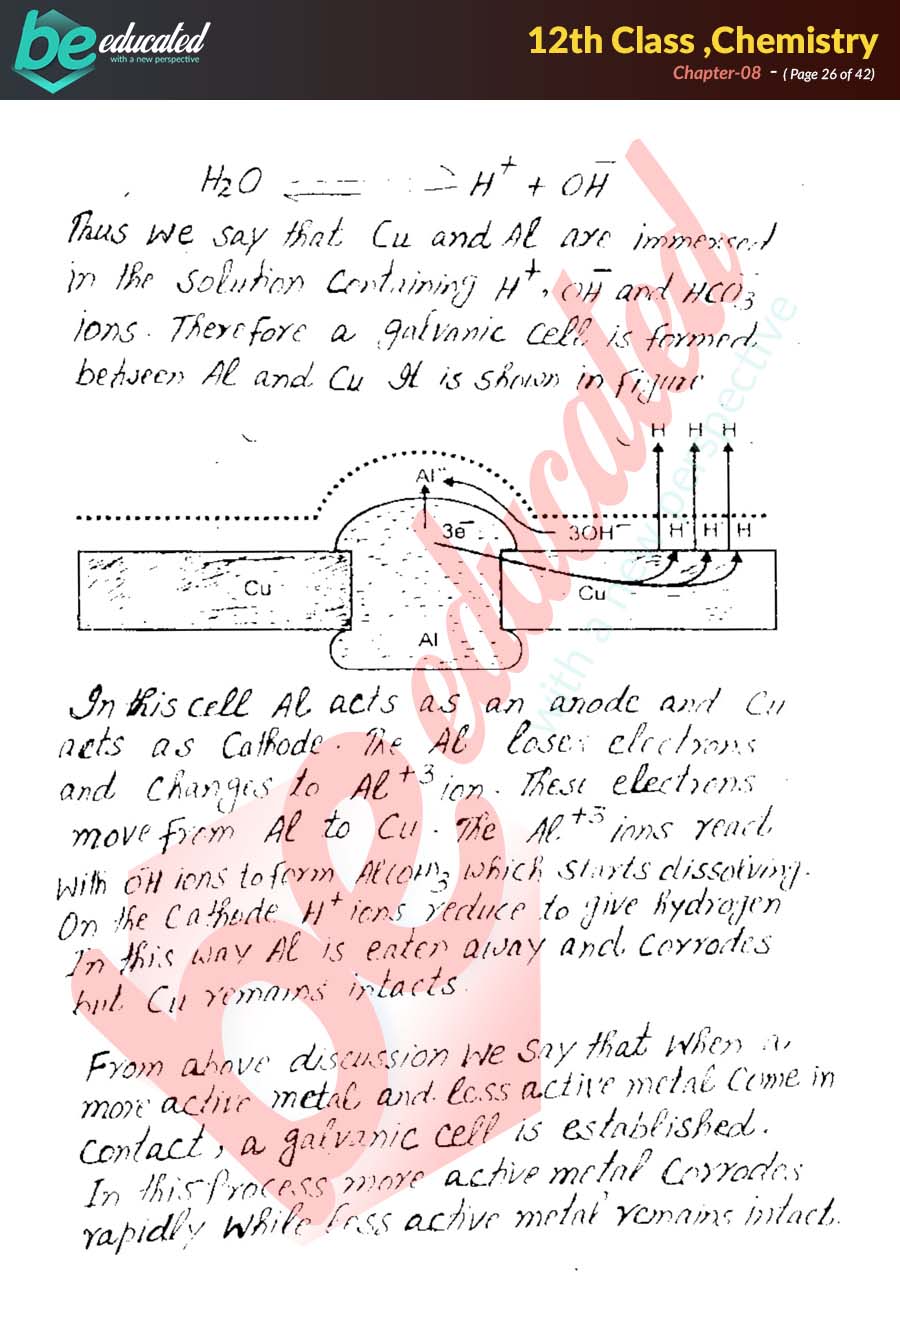 be educated
with a new perspective
12th Class ,Chemistry
Chapter-08 - ( Page 26 of 42)
H2O ⇌ H+ + OH−
Thus we say that Cu and Al are immersed
in the solution containing H+, OH− and HCO3−
ions. Therefore a galvanic cell is formed
between Al and Cu It is shown in figure
H H H
Al
3e− 3OH− H H H
Cu Cu
Al
In this cell Al acts as an anode and Cu
acts as Cathode. The Al loses electrons
and changes to Al+3 ion. These electrons
move from Al to Cu. The Al+3 ions react
with OH ions to form Al(OH)3 which starts dissolving.
On the Cathode H+ ions reduce to give hydrogen
In this way Al is eaten away and Corrodes
but Cu remains intacts.
From above discussion we say that when a
more active metal and less active metal Come in
Contact, a galvanic cell is established.
In this Process more active metal Corrodes
rapidly while less active metal remains intact.
be educated
with a new perspective